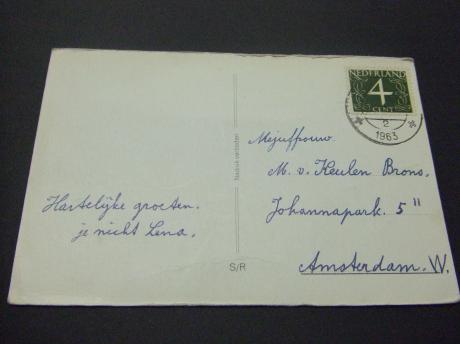 NEDERLAND
4
CENT
2
1963
Mejuffrouw.
M. v. Keulen Brons.
Johannapark. 5"
Amsterdam. W.
Hartelijke groeten.
je nicht Lena.
Nadruk verboden
S/R